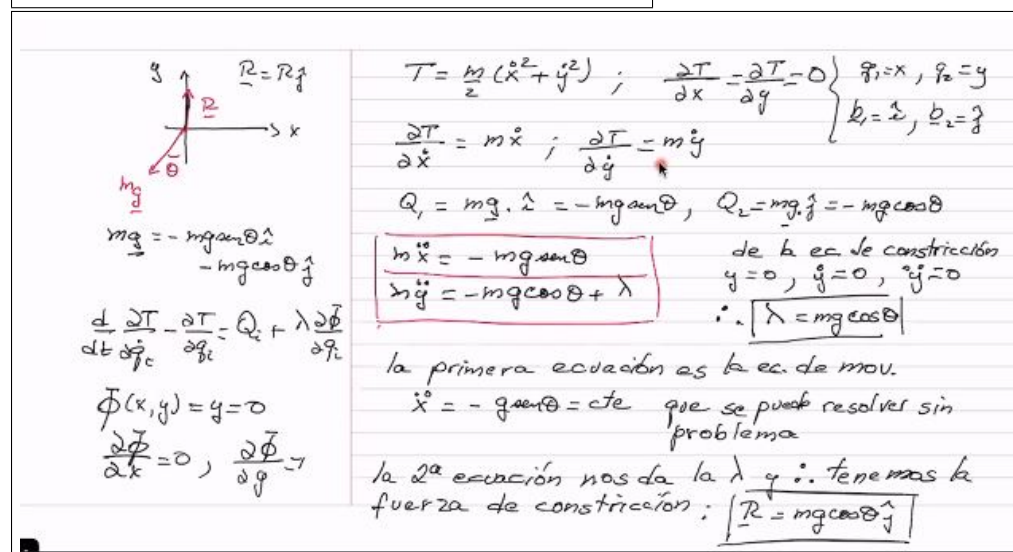 y R = Rĵ
R
x
θ
mg
mg = - mg sen θ î
- mg cos θ ĵ
d/dt ∂T/∂q̇ᵢ - ∂T/∂qᵢ = Qᵢ + λ ∂Φ/∂qᵢ
Φ(x,y) = y = 0
∂Φ/∂x = 0 , ∂Φ/∂y = 1
T = m/2 (ẋ² + ẏ²) ; ∂T/∂x = ∂T/∂y = 0 } q₁=x, q₂=y
b₁ = î , b₂ = ĵ
∂T/∂ẋ = mẋ ; ∂T/∂ẏ = mẏ
Q₁ = mg · î = - mg sen θ , Q₂ = mg · ĵ = - mg cos θ
mẍ = - mg sen θ
mÿ = - mg cos θ + λ
de la ec. de constricción
y = 0 , ẏ = 0 , ÿ = 0
∴ λ = mg cos θ
la primera ecuación es la ec. de mov.
ẍ = - g sen θ = cte que se puede resolver sin
problema
la 2ª ecuación nos da la λ y ∴ tenemos la
fuerza de constricción : R = mg cos θ ĵ